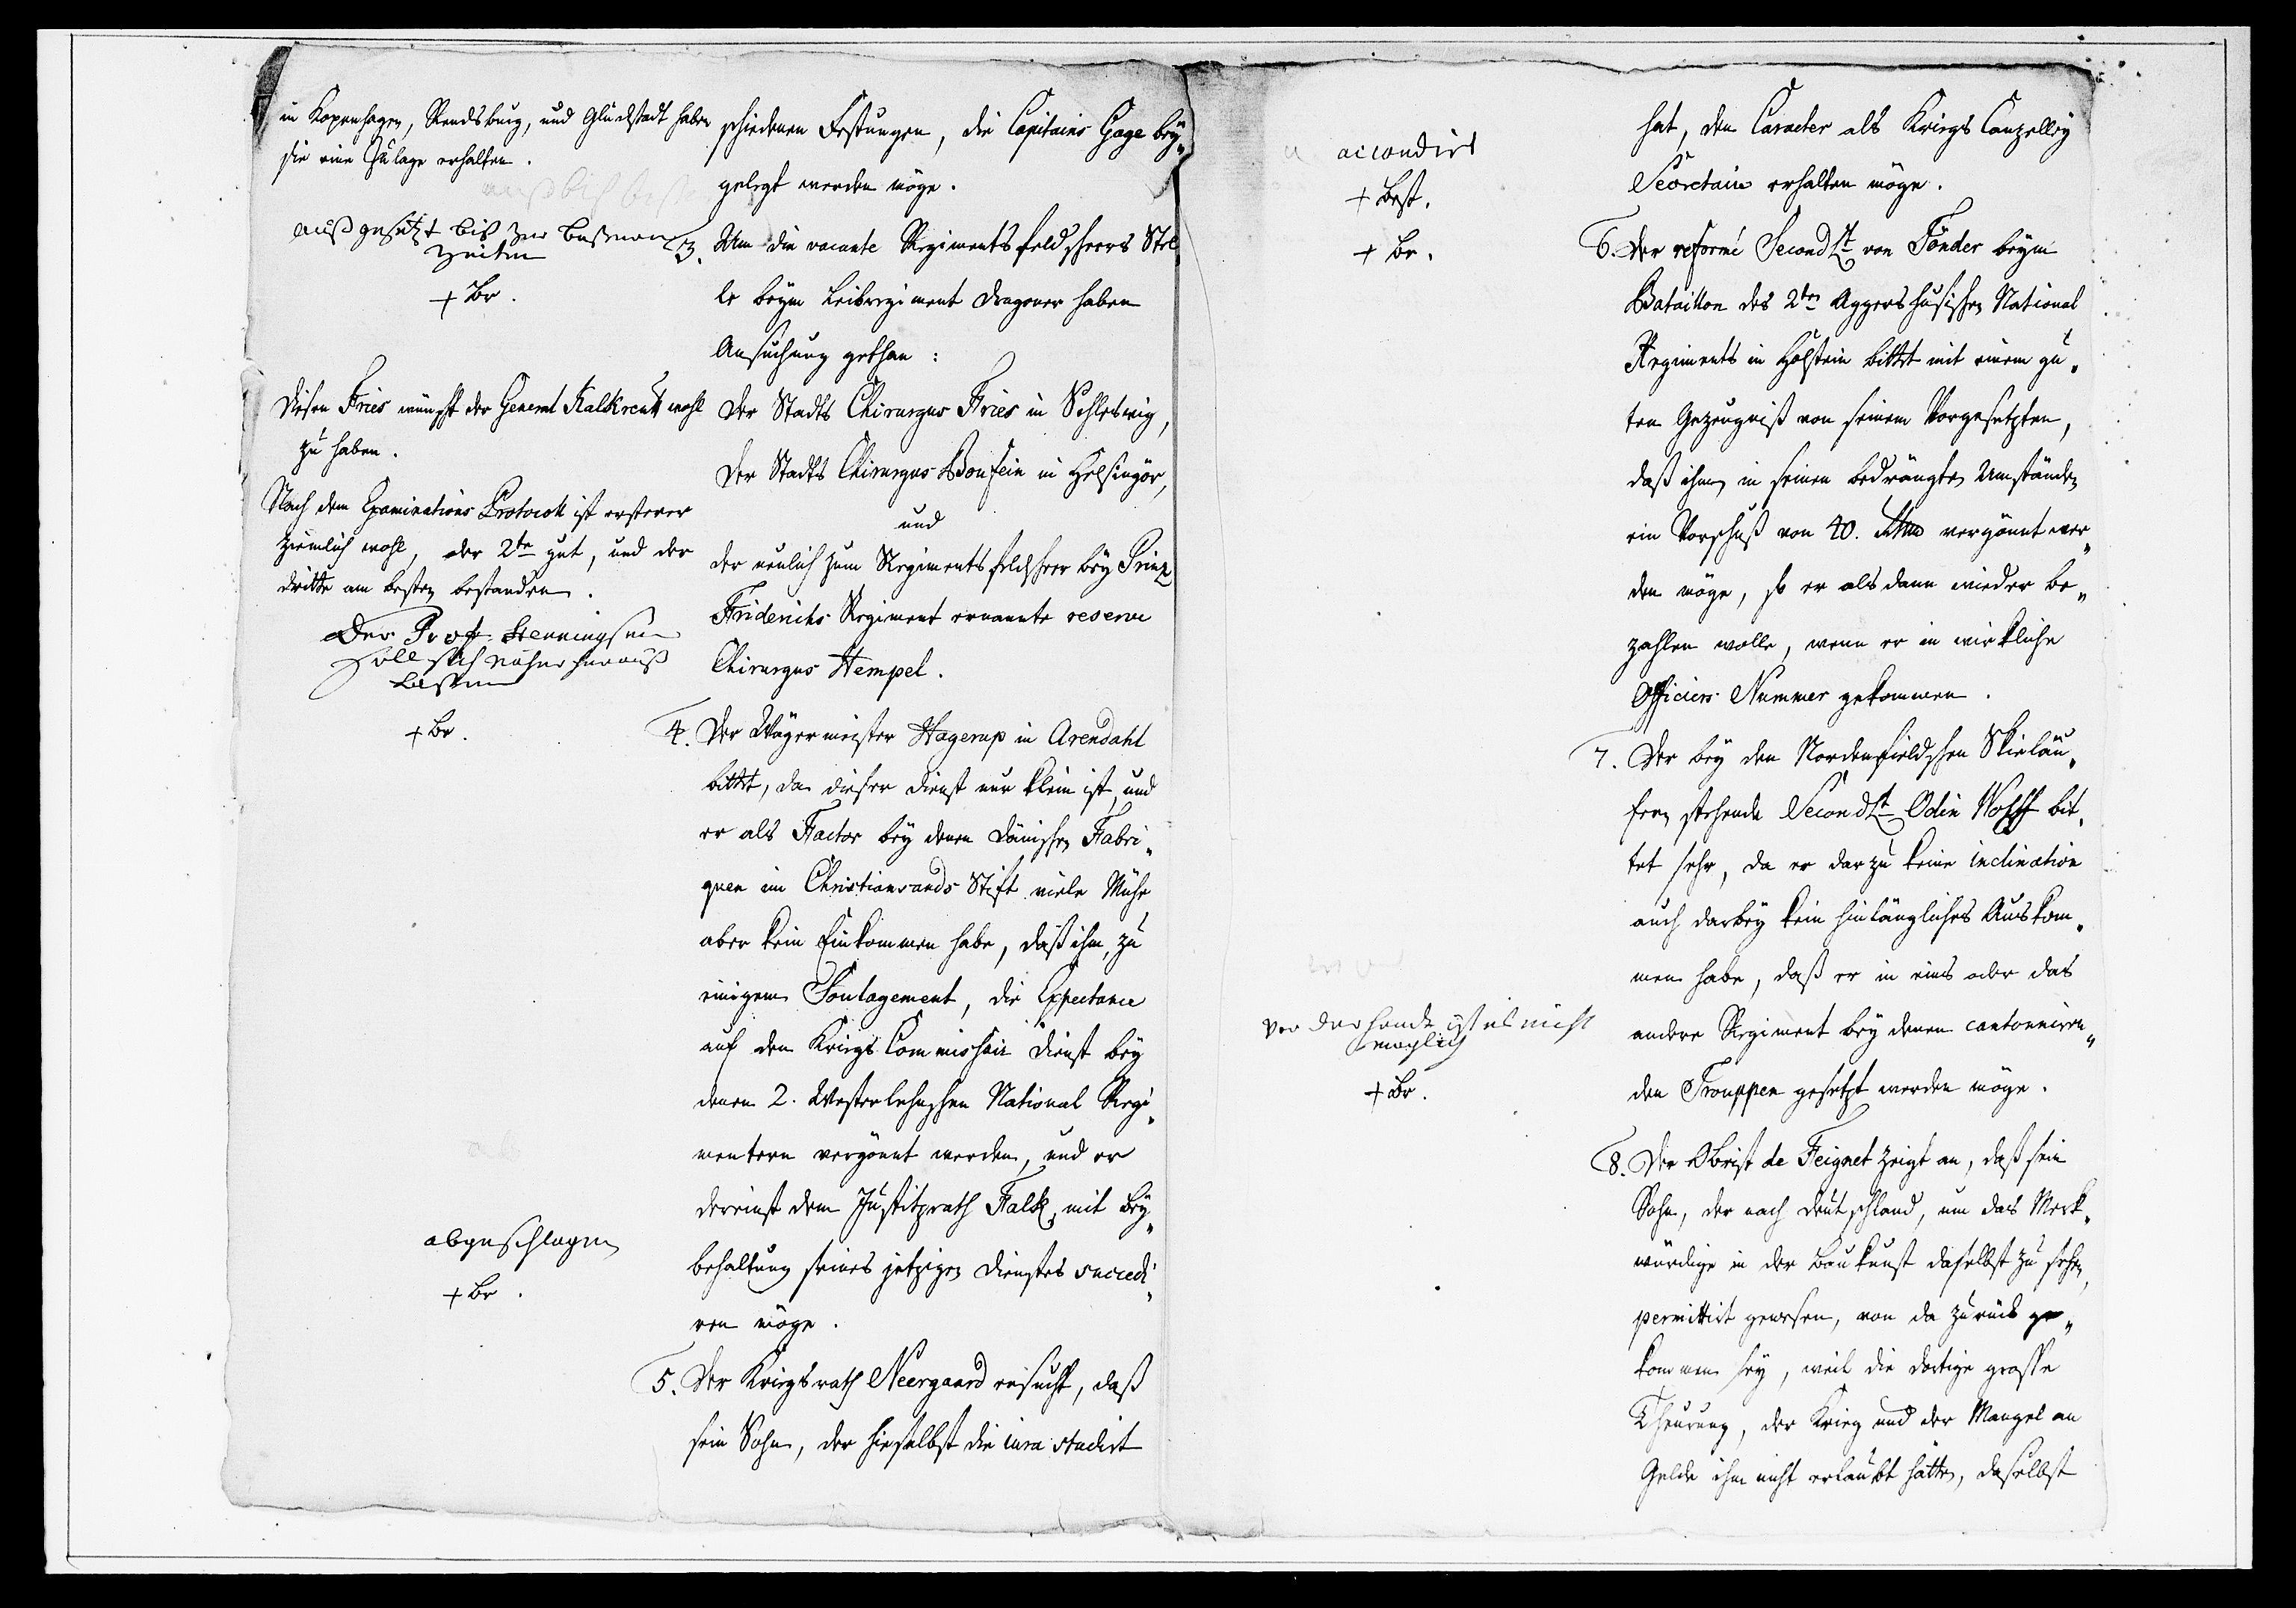 in Kopenhagen, Rendsburg, und Glückstadt haben
sie eine Zulage erhalten.
außgesetzt bis zur beßeren
Zeiten
+ Br.
Diesen Fries wünscht der General Kalkreutt wohl
zu haben.
Nach dem Examinations Protocoll ist ersterer
ziemlich wohl, der 2te gut, und der
dritte am besten bestanden.
Der Prof. Henningsen
soll sich näher herauß
laßen
+ Br.
abgeschlagen
+ Br.
schiedenen Festungen, die Capitains Gage bey„
gelegt werden möge.
3. Um die vacante Regimentsfeldscheers Stel„
le beym Leibregiment Dragoner haben
Ansuchung gethan:
Der Stadts Chirurgus Fries in Schleswig,
Der Stadts Chirurgus Bonsein in Helsingör,
und
der neulich zum Regimentsfeldscheer bey Prinz
Friderichs Regiment ernannte reserve
Chirurgus Hempel.
4. Der Wägermeister Hagerup in Arendahl
bittet, da dieser Dienst nur klein ist, und
er als Factor bey denen Dänischen Fabri„
quen im Christiansands Stift viele Mühe
aber kein Einkommen habe, daß ihm, zu
einigem Soulagement, die Expectance
auf den Kriegs Commissair Dienst bey
denen 2. Westerlehnschen National Regi„
mentern vergönnt werden, und er
dereinst dem Justitzrath Falk, mit Bey„
behaltung seines jetzigen Dienstes succedi„
ren möge.
5. Der Kriegsrath Neergaard ersucht, daß
sein Sohn, der hieselbst die iura studirt
accordirt
+ Best.
+ Br.
vor der handt ist es nicht
möglich
+ Br.
hat, den Caracter als Kriegs Canzelley
Secretaire erhalten möge.
6. Der reformé Second Lt von Tönder beym
Bataillon des 2ten Aggershusischen National
Regiments in Holstein bittet mit einem gu„
ten Gezeugniß von seinem Vorgesetzten,
daß ihm in seinen bedrängten Umständen
ein Vorschuß von 40. Rthlr vergönnt wer„
den möge, so er alsdann wieder be„
zahlen wolle, wenn er in wirkliche
Officiers Nummer gekommen.
7. Der bey den Nordenfieldschen Skieläu„
fern stehende Second Lt Odin Wolff bit„
tet sehr, da er darzu keine inclination
auch darbey kein hinlängliches Auskom„
men habe, daß er in eins oder das
andere Regiment bey denen cantonniren„
den Trouppen gesetzt werden möge.
8. Der Obrist de Feignet zeigt an, daß sein
Sohn, der nach Deutschland, um das Merk„
würdige in der Baukunst daselbst zu sehen,
permittirt gewesen, von da zurück ge„
kommen sey, weil die dortige grosse
Theurung, der Krieg und der Mangel an
Gelde ihm nicht erlaubt hätten, daselbst